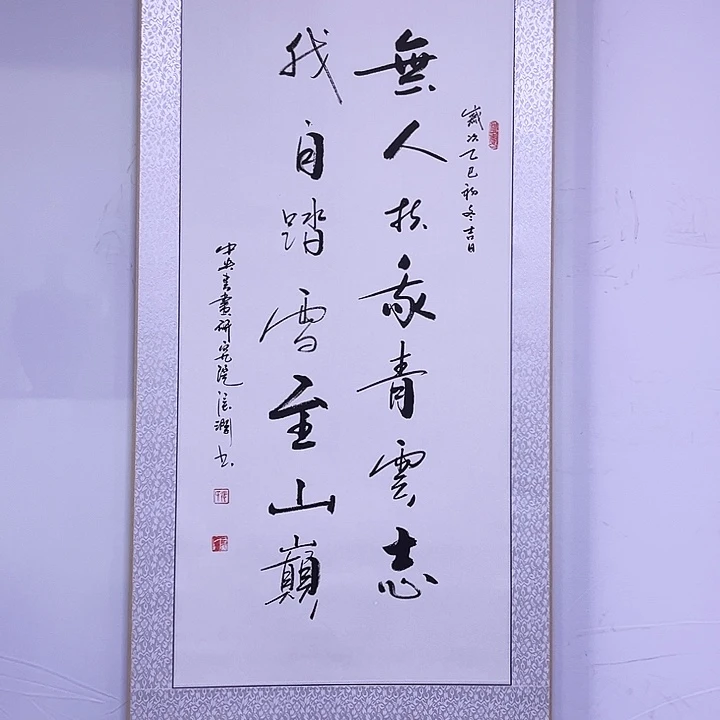 歲次乙巳初冬吉日
無人扶我青雲志
我自踏雪至山巔
中央書畫研究院
书